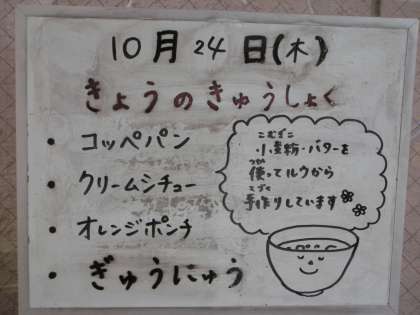 10月24日(木)
きょうのきゅうしょく
• コッペパン
• クリームシチュー
• オレンジポンチ
• ぎゅうにゅう
こむぎこ
小麦粉・バターを
つか
使ってルウから
てづく
手作りしています